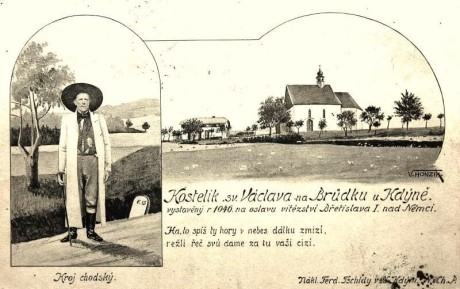 V. HONZÍK
Kostelík sv. Václava na Brůdku u Kdýně.
vystavěný r 1040. na oslavu vítězství Břetislava I. nad Němci.
Ha, to spíš ty hory v nebes dálku zmizí,
nežli řeč svů dame za tu vaši cizí.
Kroj chodský.
Nákl. Ferd.